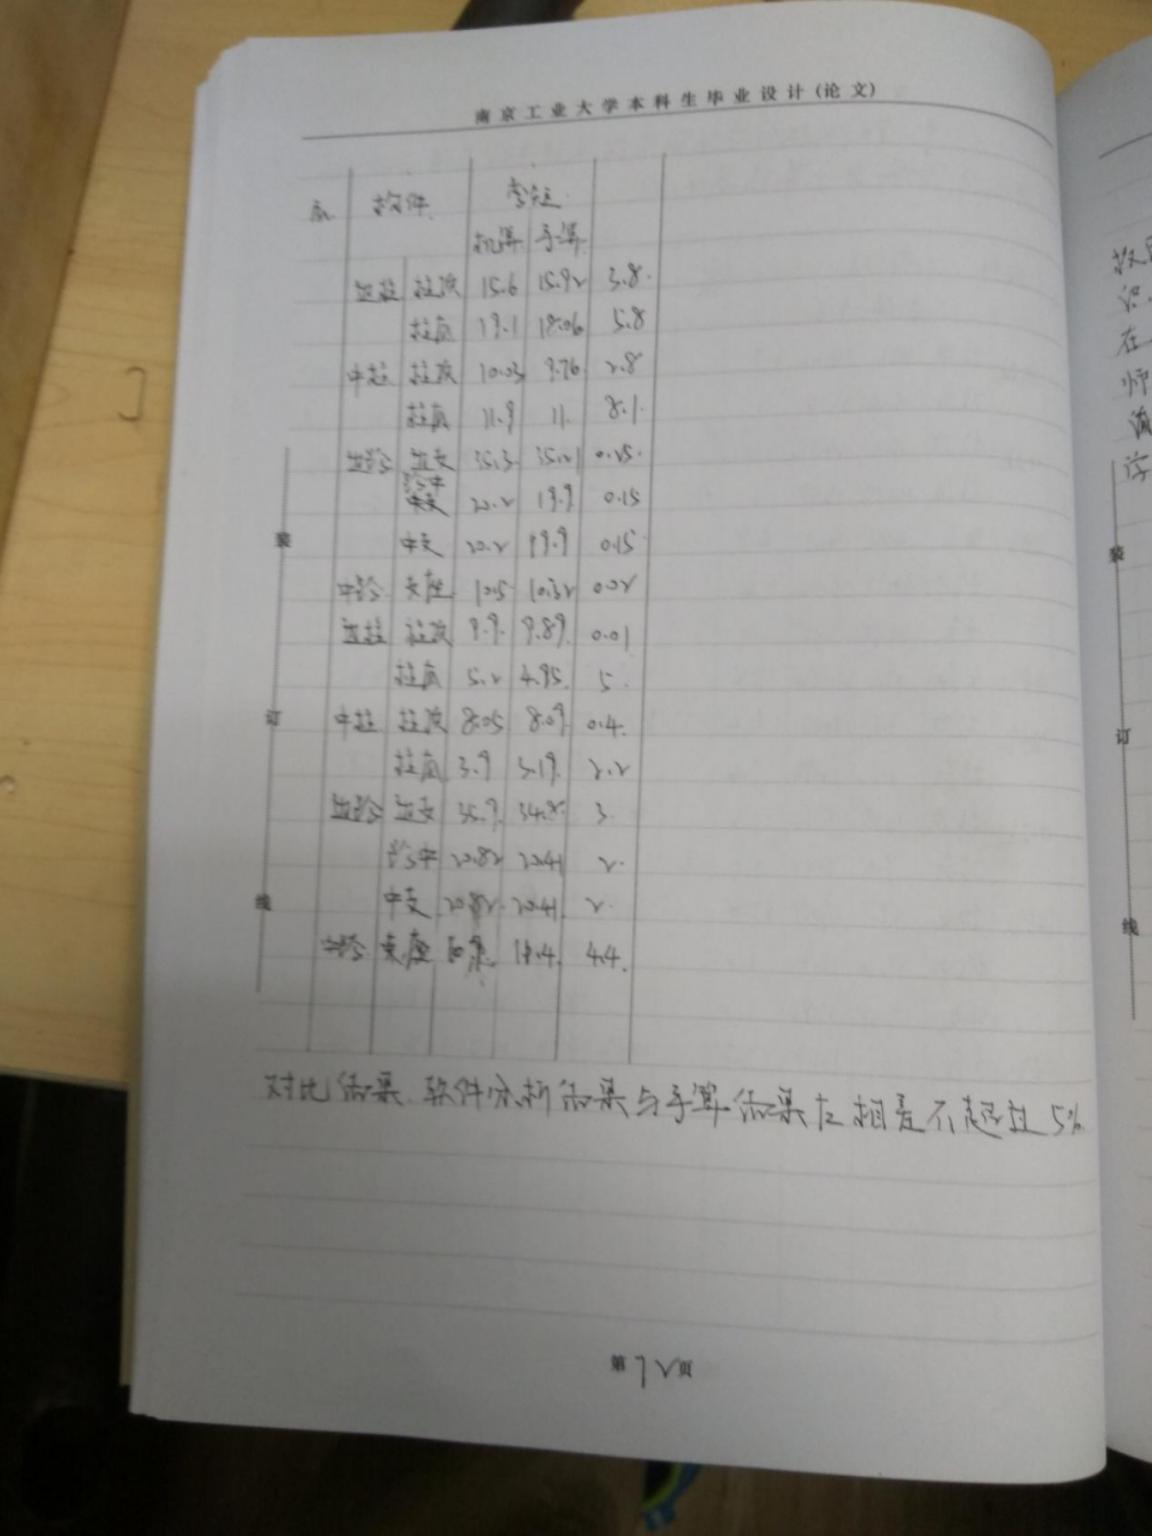 南京工业大学本科生毕业设计(论文)
构件 弯矩
机算 手算
边柱 柱顶 15.6 15.92 3.8
柱底 19.1 18.06 5.8
中柱 柱顶 10.03 9.76 2.8
柱底 11.9 11. 8.1
边跨 边支 35.3 35.21 0.25
跨中 20.2 19.9 0.15
中支 20.2 19.9 0.15
中跨 支座 10.5 10.32 0.02
边柱 柱顶 9.9 9.89 0.01
柱底 5.2 4.95 5
中柱 柱顶 8.05 8.09 0.4
柱底 3.9 3.19 2.2
边跨 边支 35.9 34.8 3
跨中 20.82 20.41 2
中支 20.82 20.41 2
中跨 支座 4.4
对比结果 软件分析结果与手算结果 相差不超过5%
第12页
装
订
线
装
订
线
在
师